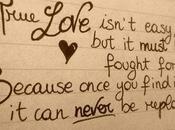 True Love isn't easy
but it must
fought for
Because once you find i
it can never be repla